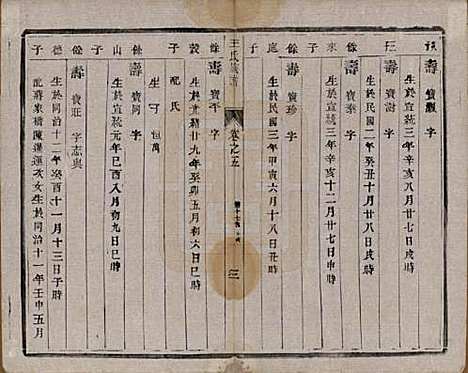 族 壽 寶獻 字
生於宣統三年辛亥十月廿八日戌時
玨 壽 寶澍 字
生於民國二年癸丑十月廿八日戌時
餘 壽 寶泰 字
生於宣統三年辛亥十二月廿七日亥時
庭 壽 寶珍 字
子
生於民國三年甲寅六月十八日丑時
王氏族譜 卷之五 三
餘 壽 寶平 字
子
生於光緒廿九年癸卯五月初六日巳時
配氏
生一子 恒萬
山 壽 寶同 字
子
生於宣統元年己酉八月初九日巳時
德 壽 寶莊 字志與
子
生於同治十二年癸酉十一月十三日子時
配蔣家橋陳暹運次女生於同治十一年壬申五月